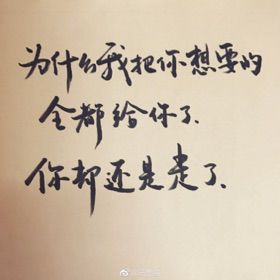 为什么我把你想要的
全都给你了、
你却还是走了、